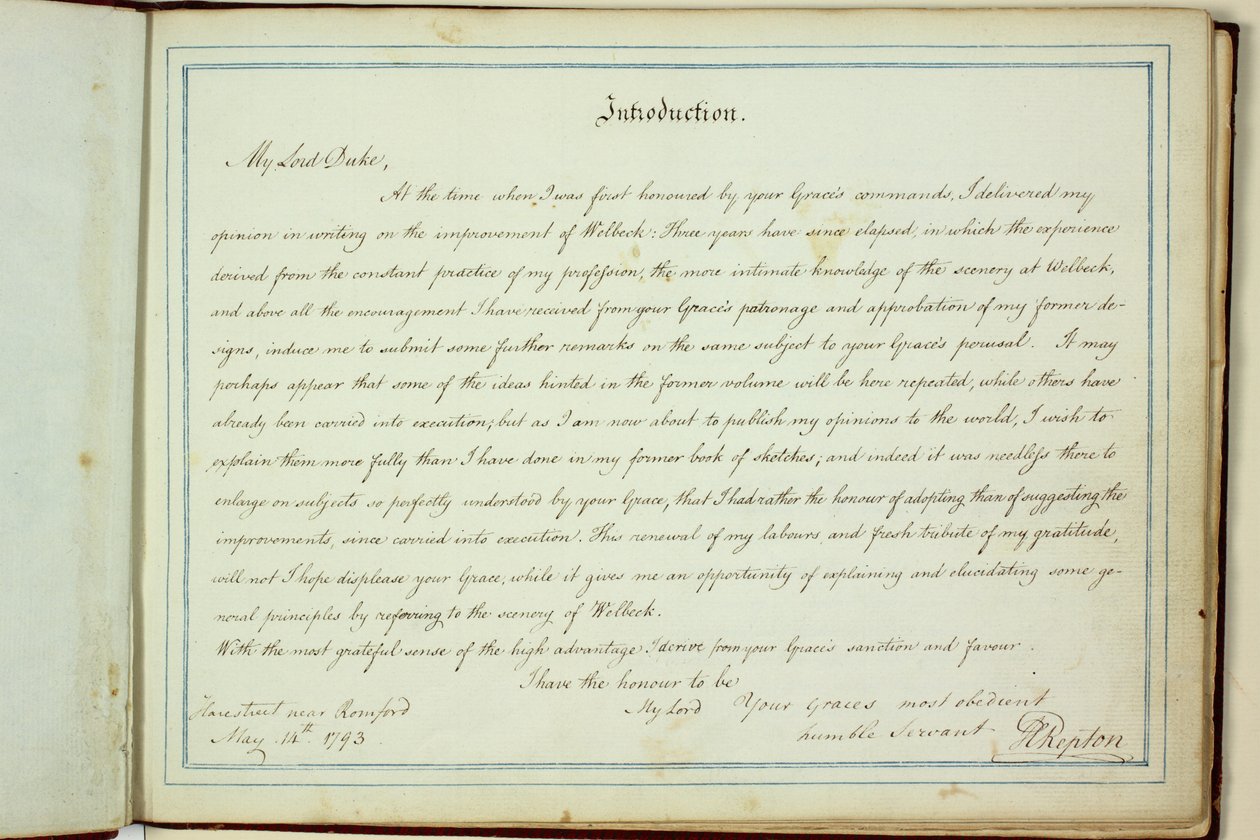 Introduction.
My Lord Duke,
At the time when I was first honoured by your Grace's commands, I delivered my
opinion in writing on the improvement of Welbeck: Three years have since elapsed, in which the experience
derived from the constant practice of my profession, the more intimate knowledge of the scenery at Welbeck,
and above all the encouragement I have received from your Grace's patronage and approbation of my former de-
signs, induce me to submit some further remarks on the same subject to your Grace's perusal. It may
perhaps appear that some of the ideas hinted in the former volume will be here repeated, while others have
already been carried into execution; but as I am now about to publish my opinions to the world, I wish to
explain them more fully than I have done in my former book of sketches; and indeed it was needless there to
enlarge on subjects so perfectly understood by your Grace, that I had rather the honour of adopting than of suggesting the
improvements, since carried into execution. This renewal of my labours, and fresh tribute of my gratitude,
will not I hope displease your Grace, while it gives me an opportunity of explaining and elucidating some ge-
neral principles by referring to the scenery of Welbeck.
With the most grateful sense of the high advantage I derive from your Grace's sanction and favour.
I have the honour to be
My Lord Your Graces most obedient
humble Servant
HRepton
Harestreet near Romford
May 14th. 1793